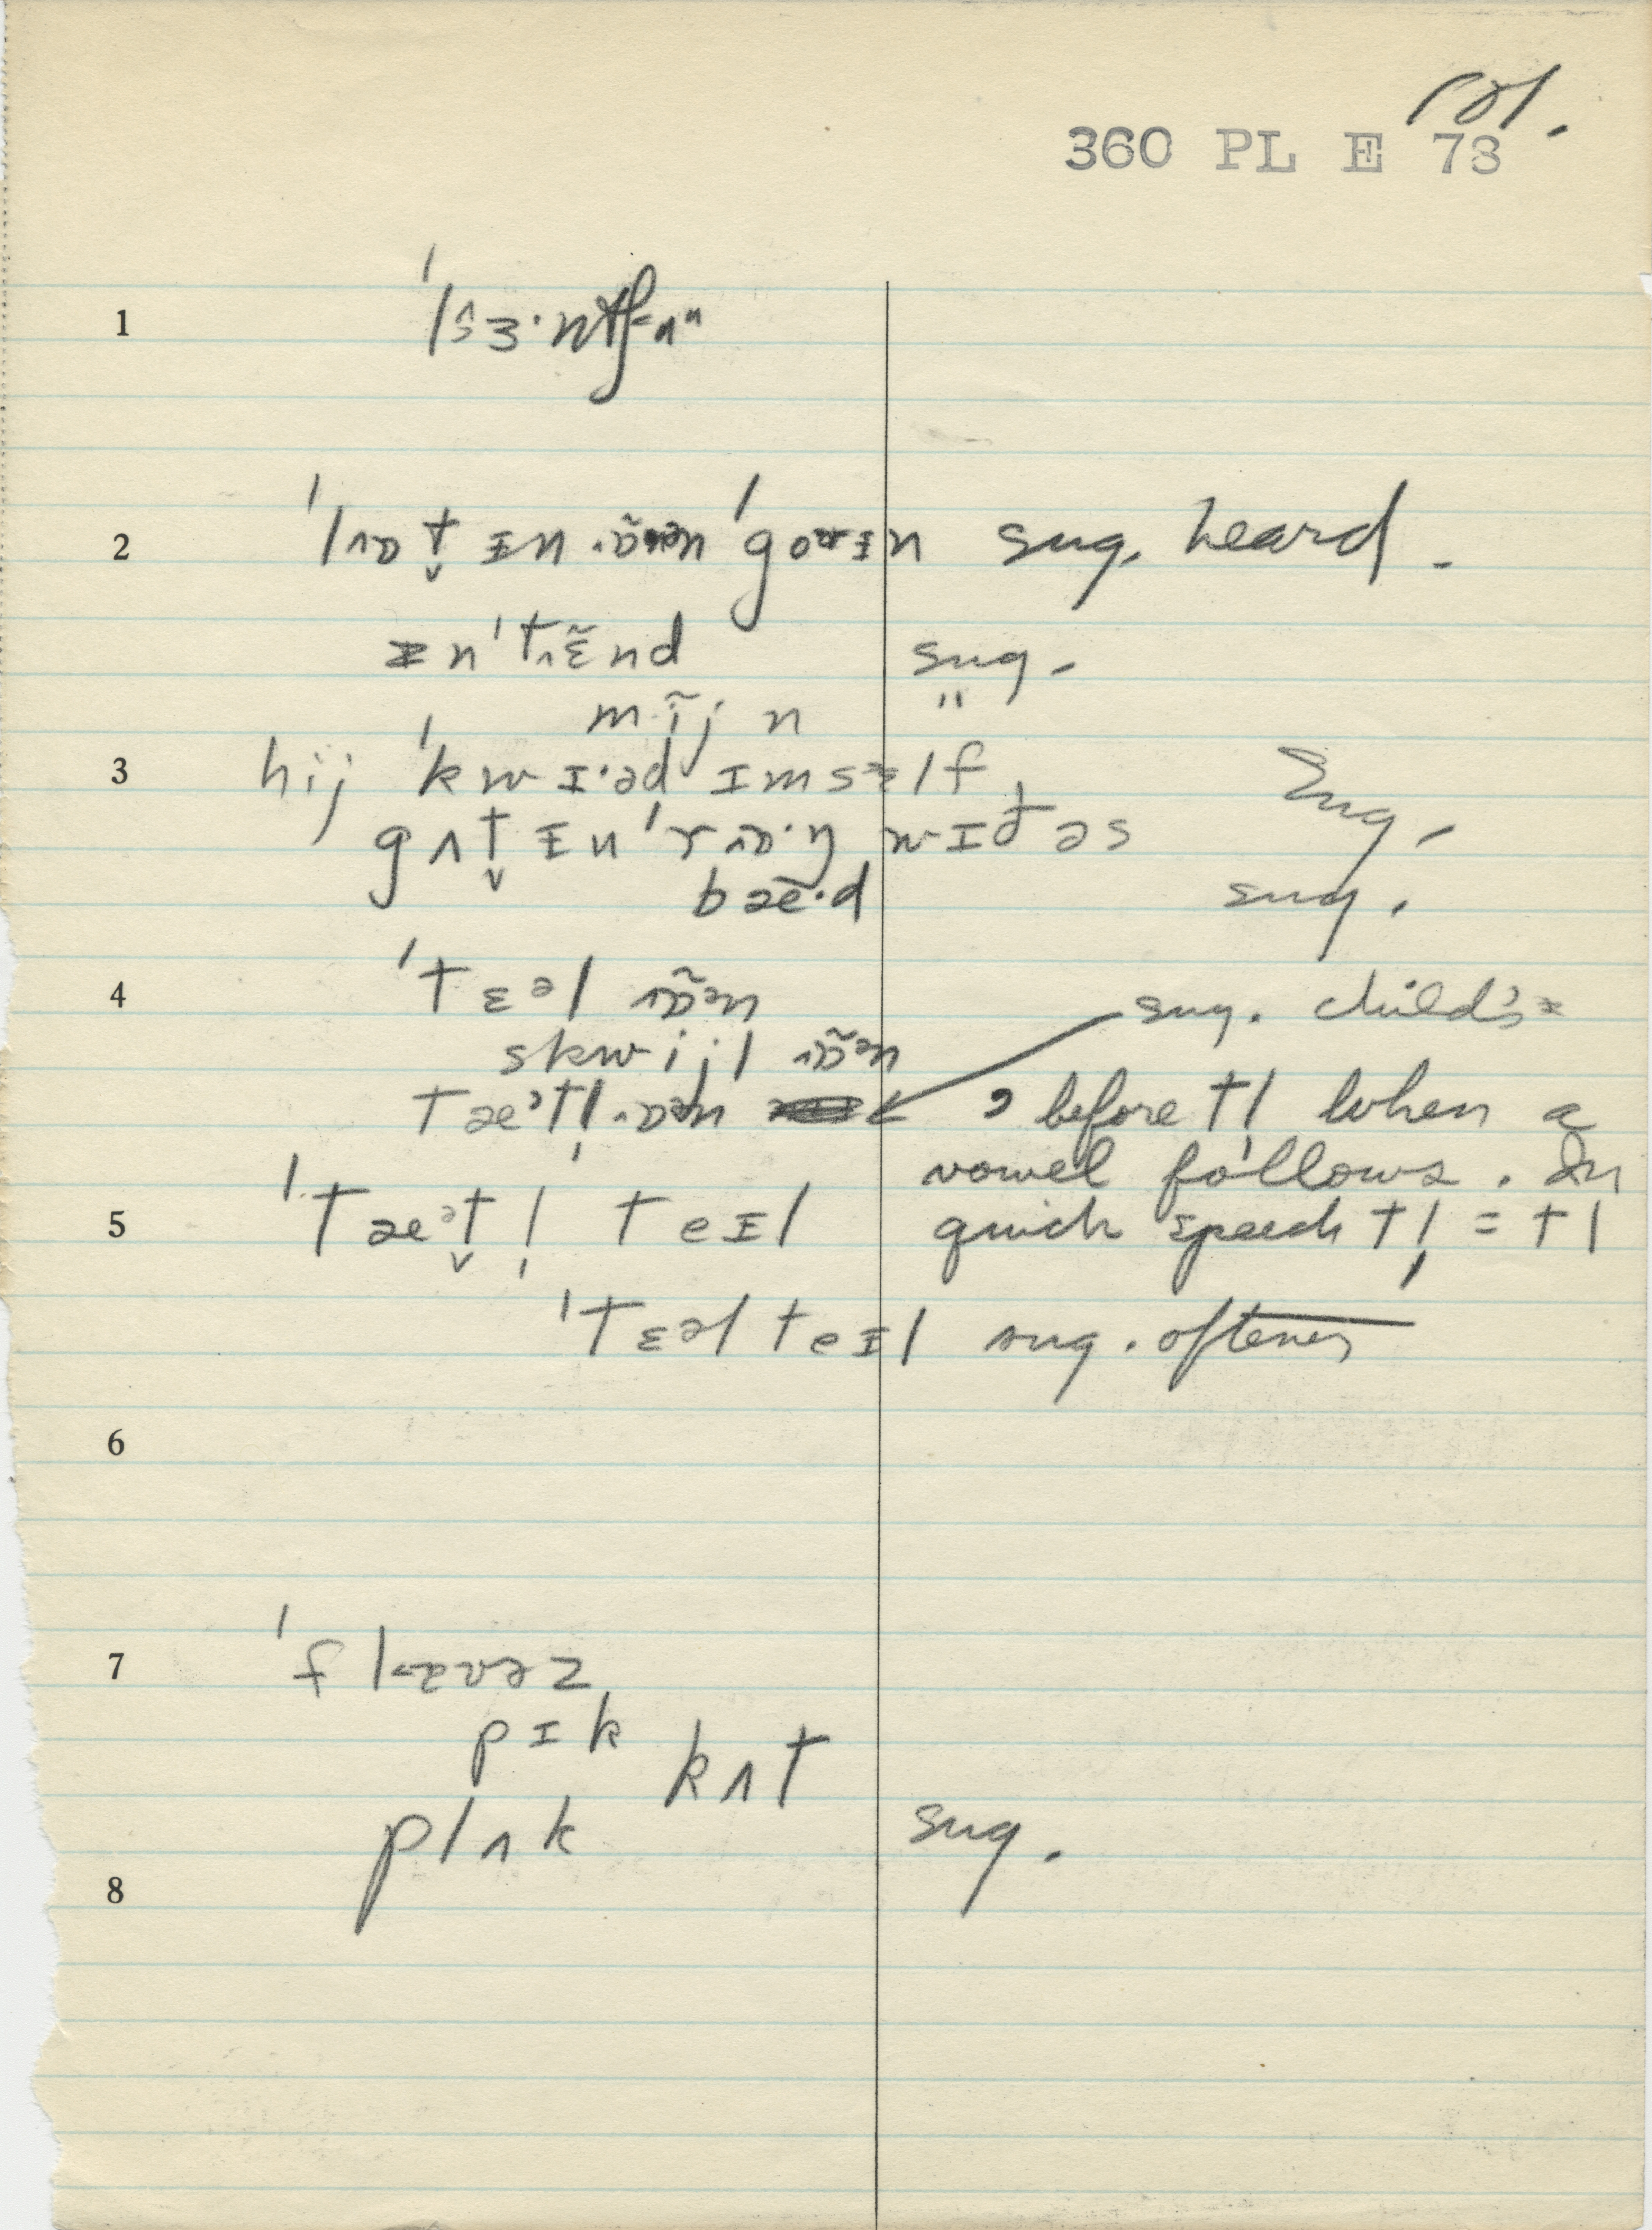 101.
360 PL E 73
1
2 ˈlɒt̬ ɪn ɒ̃ən ˈgoɪn sug. heard.
ɪnˈtɛ̃nd sug.
mĩjn "
3 hij ˈkwɪ·əd ɪmsɛlf, Sug.
gʌt̬ ɪn ˈrɒ·ŋ wɪð əs
bæ·d sug.
4 ˈtɛəl ɒ̃ən sug. child's =
skwijl ɒ̃ən
tæᵊtl̩ ɒən ə before tl̩ when a
vowel follows. In
5 ˈtæᵊt̬l̩ teɪl quick speech tl̩ = tl
ˈtɛəl teɪl sug. oftener
6
7 ˈflaʊəz
pɪk kʌt
plʌk sug.
8